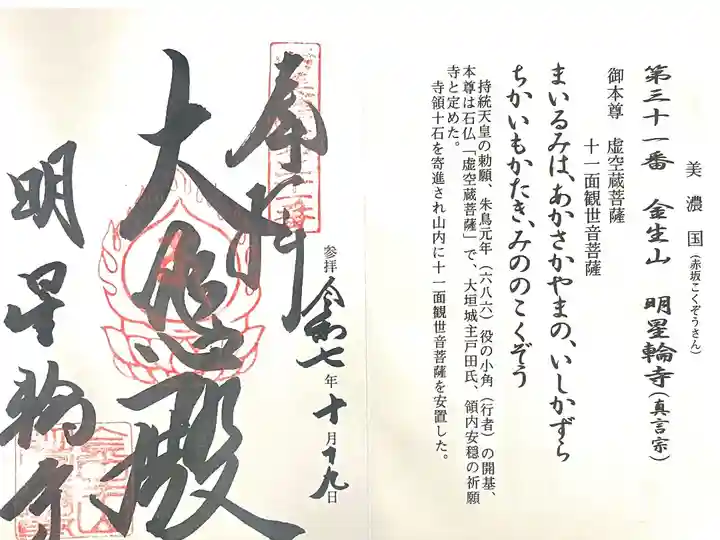 美濃国(赤坂こくぞうさん)
第三十一番 金生山 明星輪寺(真言宗)
御本尊 虚空蔵菩薩
十一面観世音菩薩
まいるみは、あかさかやまの、いしかずら
ちかいもかたき、みののこくぞう
持統天皇の勅願、朱鳥元年(六八六)役の小角(行者)の開基、
本尊は石仏「虚空蔵菩薩」で、大垣城主戸田氏、領内安穏の祈願
寺と定めた。
寺領十石を寄進され山内に十一面観世音菩薩を安置した。
参拝 令和七年十月十九日
奉拝
大悲殿
明星輪寺